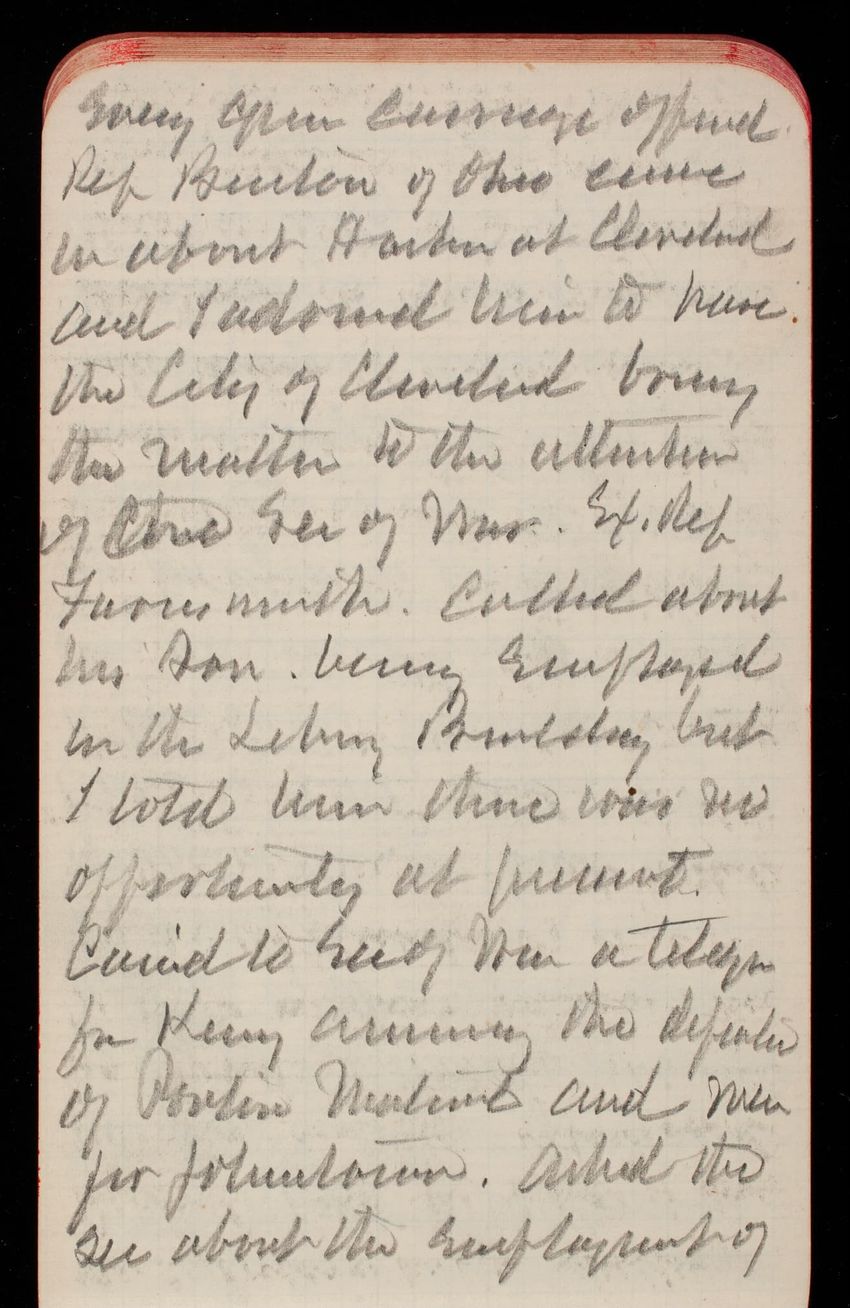 Every open carriage offered
Rep Burton of Ohio came
in about Harbor at Cleveland
and I advised him to have
the City of Cleveland bring
the matter to the attention
of the Sec of War. Ex. Rep
Farnsworth. Called about
his Son. being Employed
in the Library Building but
I told him there was no
opportunity at present.
Carried to Sec of War a telegm
fm King the
of and men
for Johnstown. Asked the
Sec about the Employment of